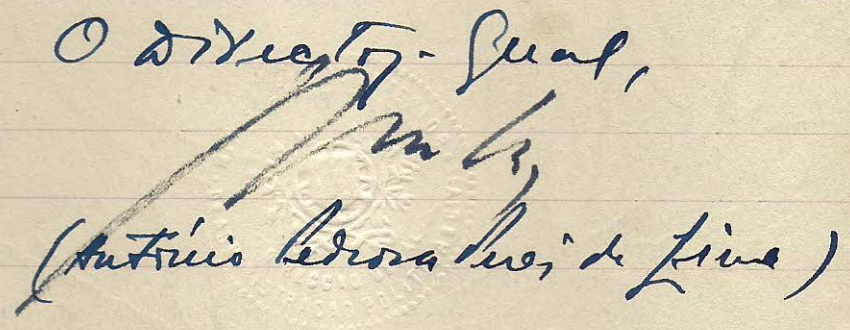 O Director-Geral,
(António Pedrosa Pires de Lima)